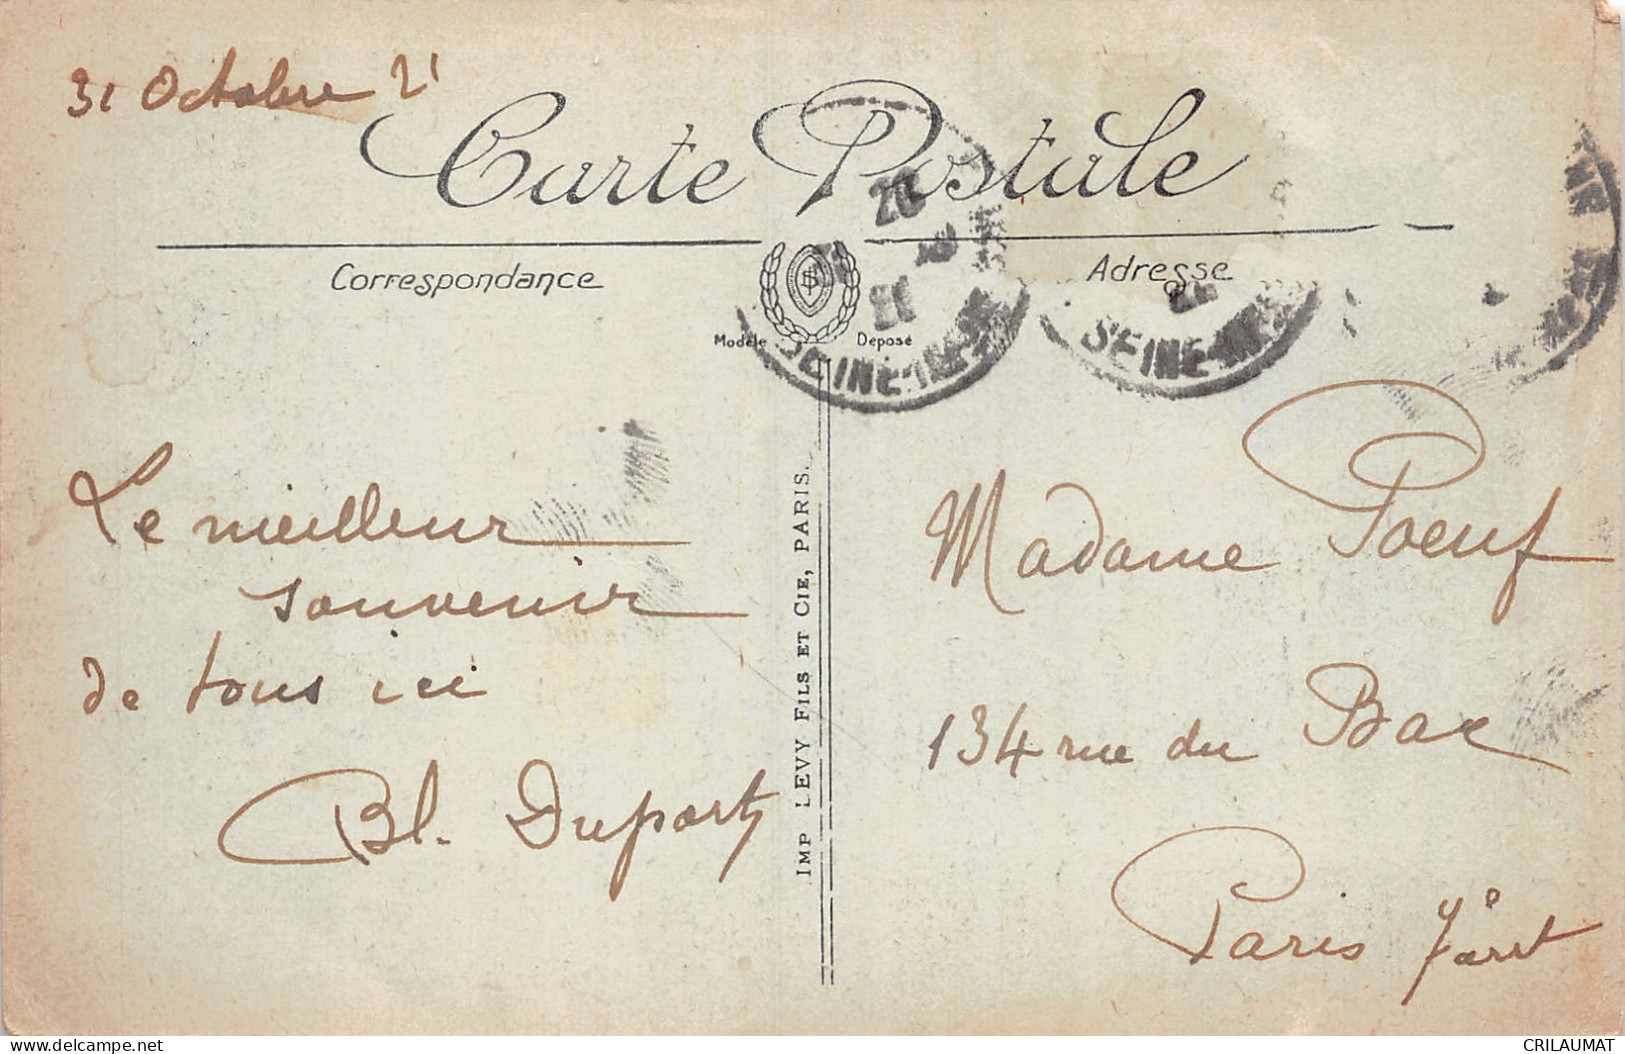 31 Octobre 21
Carte Postale
Correspondance
Adresse
Modèle Déposé
SEINE
SEINE
Le meilleur
souvenir
de tous ici
Bl. Duporty
IMP LEVY FILS ET CIE, PARIS.
Madame Poeuf
134 rue du Bac
Paris 7e arrt
delcampe.net
CRILAUMAT